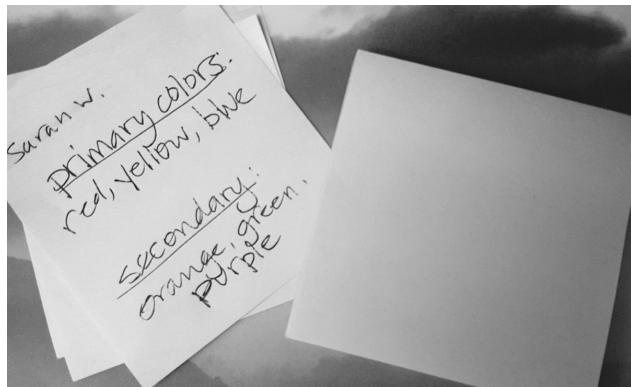 Sarah W.
primary colors:
red, yellow, blue
secondary:
orange, green.
purple